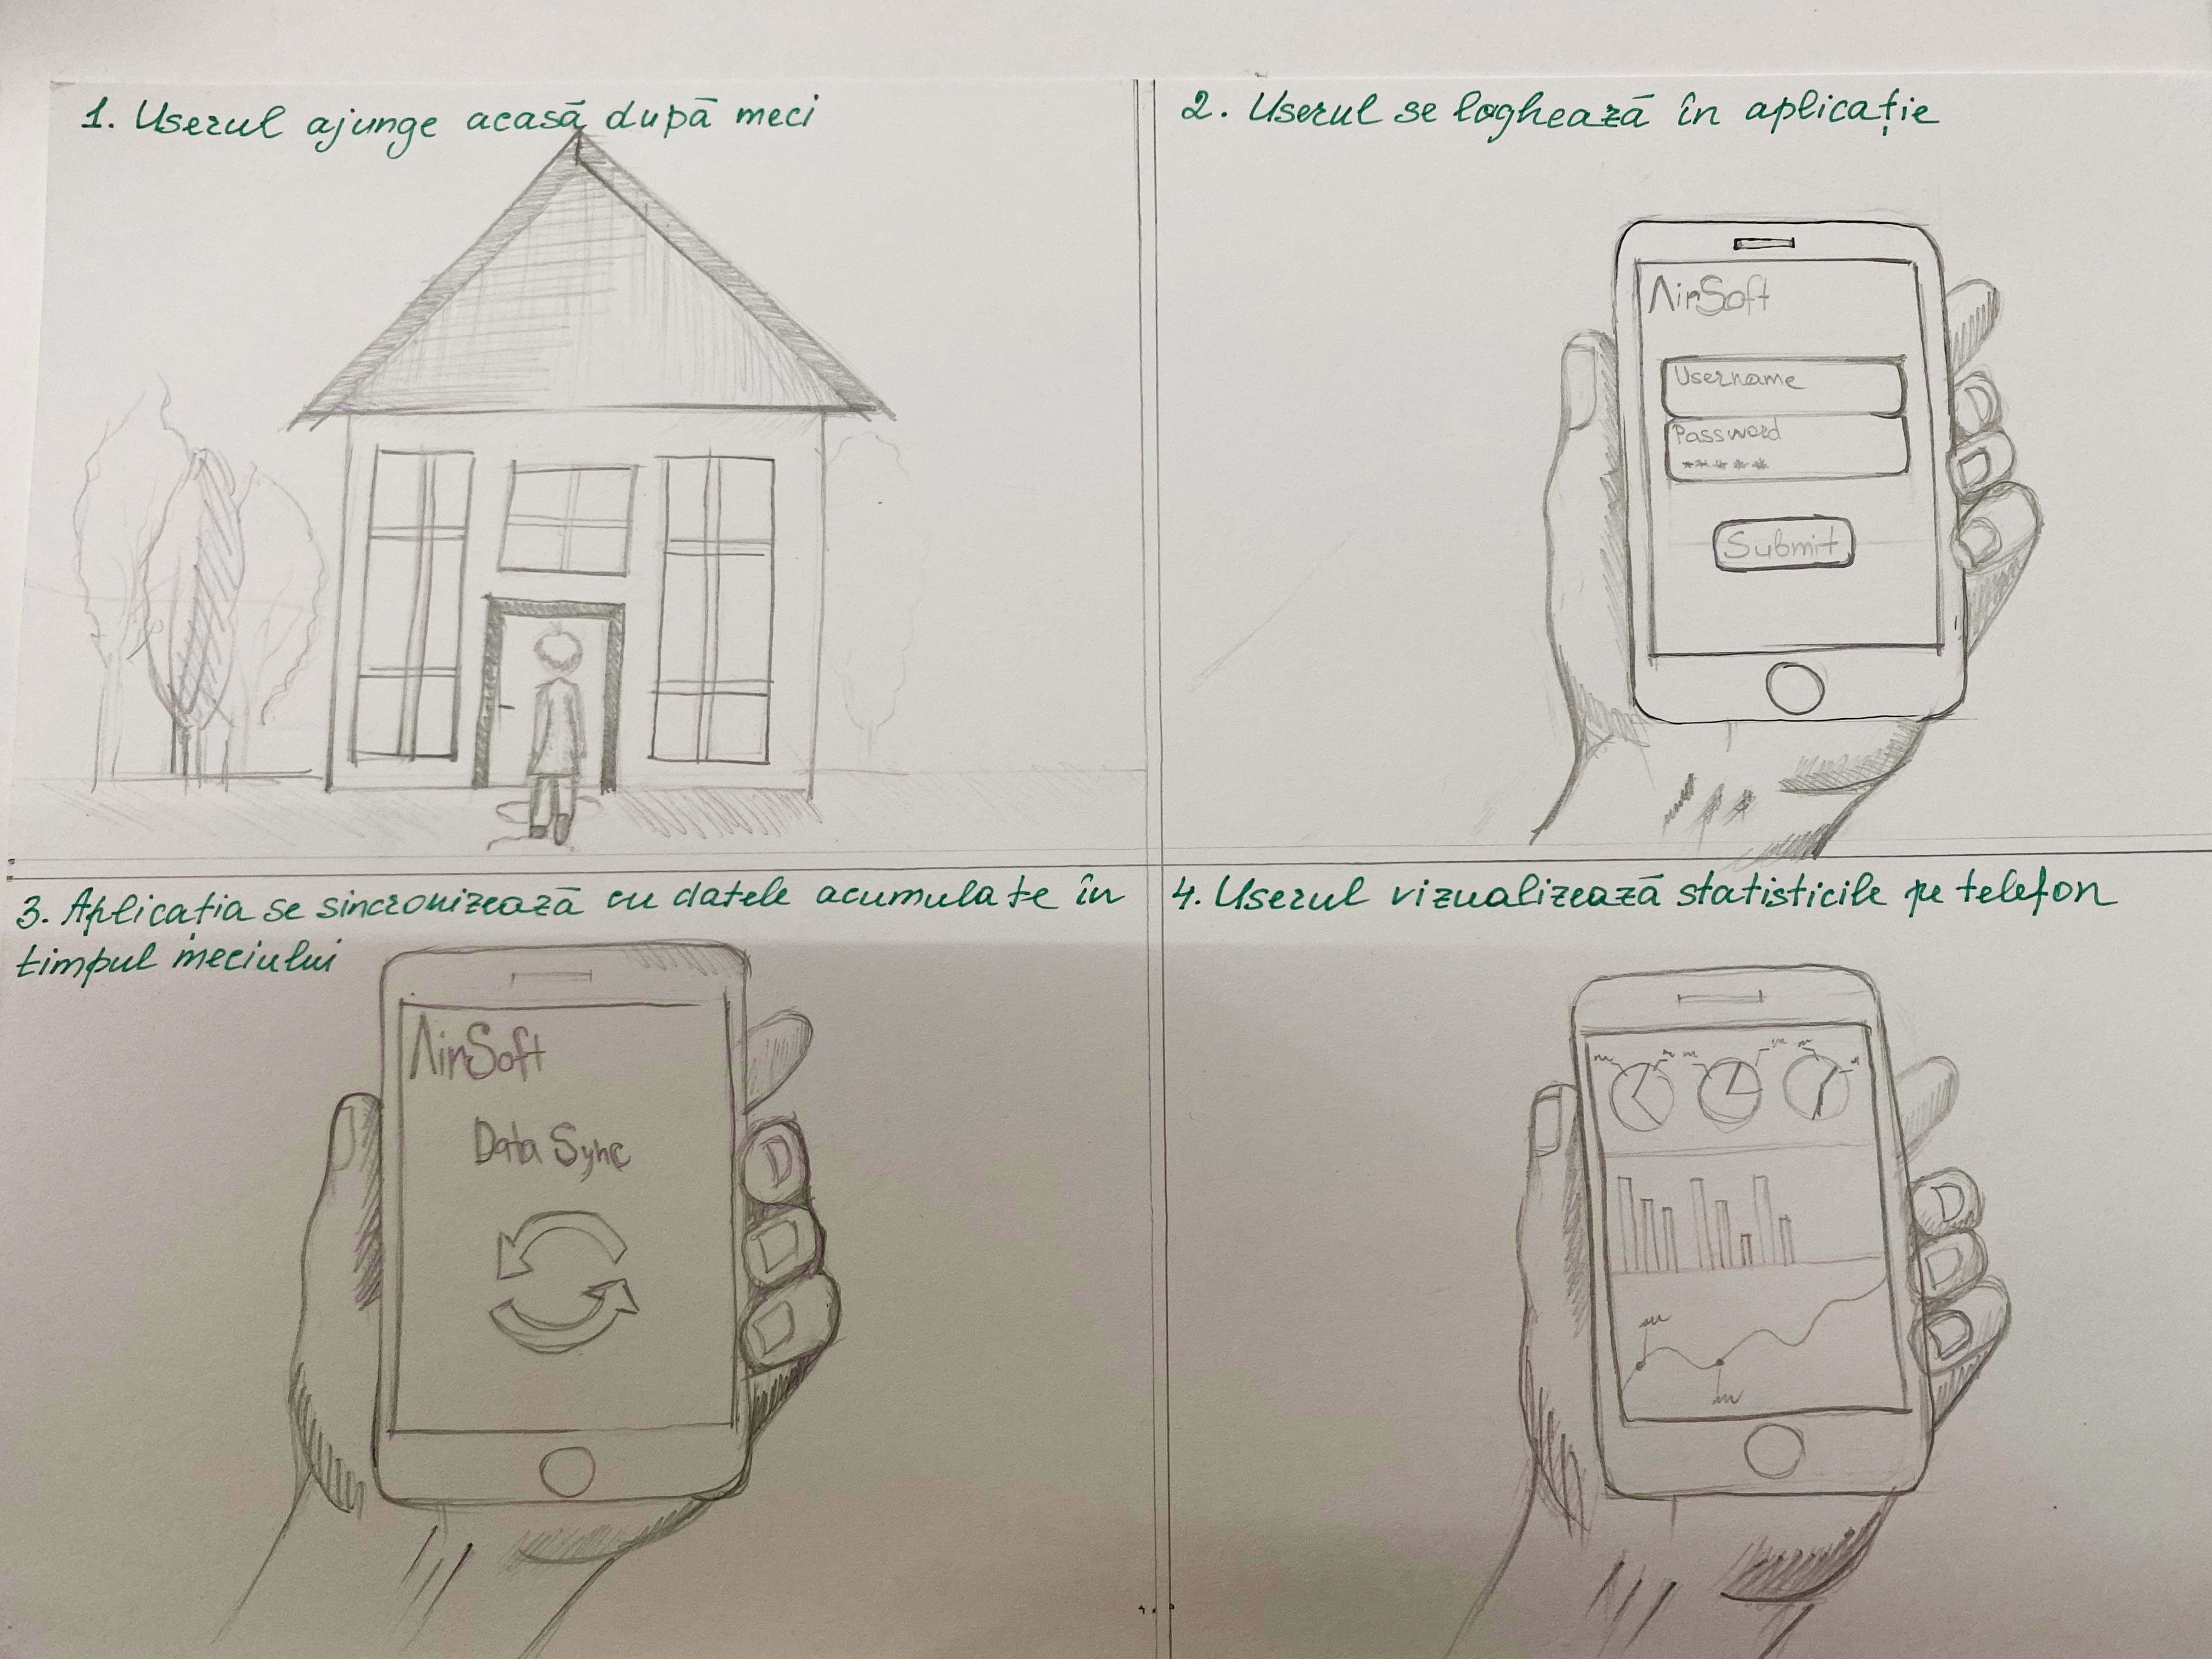 1. Userul ajunge acasă după meci
2. Userul se loghează în aplicație
AirSoft
Username
Password
*****
Submit
3. Aplicația se sincronizează cu datele acumulate în
timpul meciului
AirSoft
Data Sync
4. Userul vizualizează statisticile pe telefon